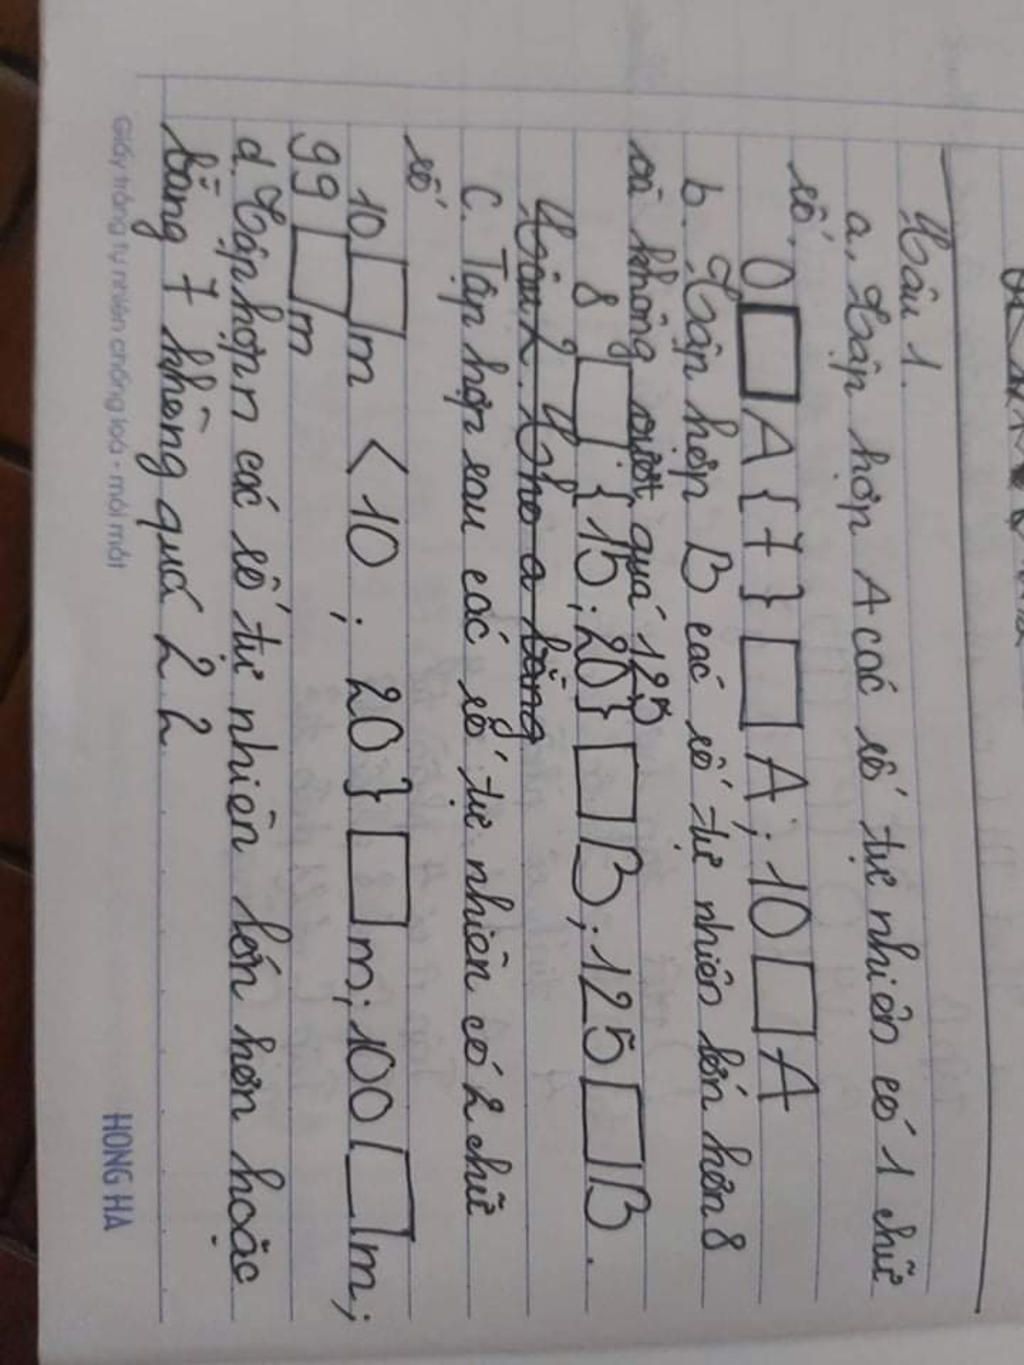 Câu 1.
a, Tập hợp A các số tự nhiên có 1 chữ
số.
0 □ A {7} □ A; 10 □ A
b. Tập hợp B các số tự nhiên lớn hơn 8
và không vượt quá 125
8 □ {15; 20} □ B; 125 □ B.
Câu 2. Cho a bằng
C. Tập hợp sau các số tự nhiên có 2 chữ
số
10 □ m < 10; 20} □ m; 100 □ m;
99 □ m
d. Tập hợp n các số tự nhiên lớn hơn hoặc
bằng 7 không quá 22
Giấy trắng tự nhiên chống loá - mỏi mắt
HONG HA